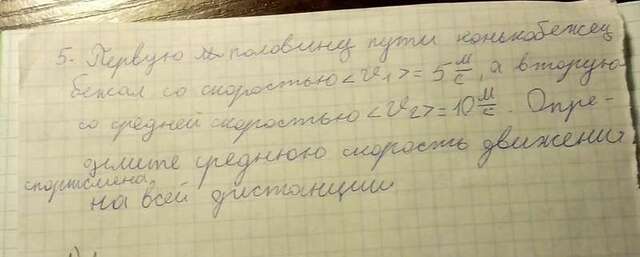 5. Первую половину пути конькобежец
бежал со скоростью <υ₁> = 5 м/с, а вторую
со средней скоростью <υ₂> = 10 м/с. Опре-
делите среднюю скорость движени
спортсмена
на всей дистанции